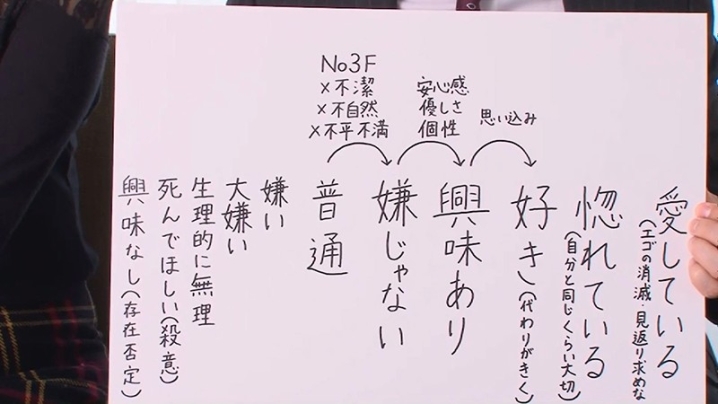 No3F
×不潔
×不自然
×不平不満
安心感
優しさ
個性
思い込み
愛している
(エゴの消滅・見返り求めな
惚れている
(自分と同じくらい大切)
好き(代わりがきく)
興味あり
嫌じゃない
普通
嫌い
大嫌い
生理的に無理
死んでほしい(殺意)
興味なし(存在否定)